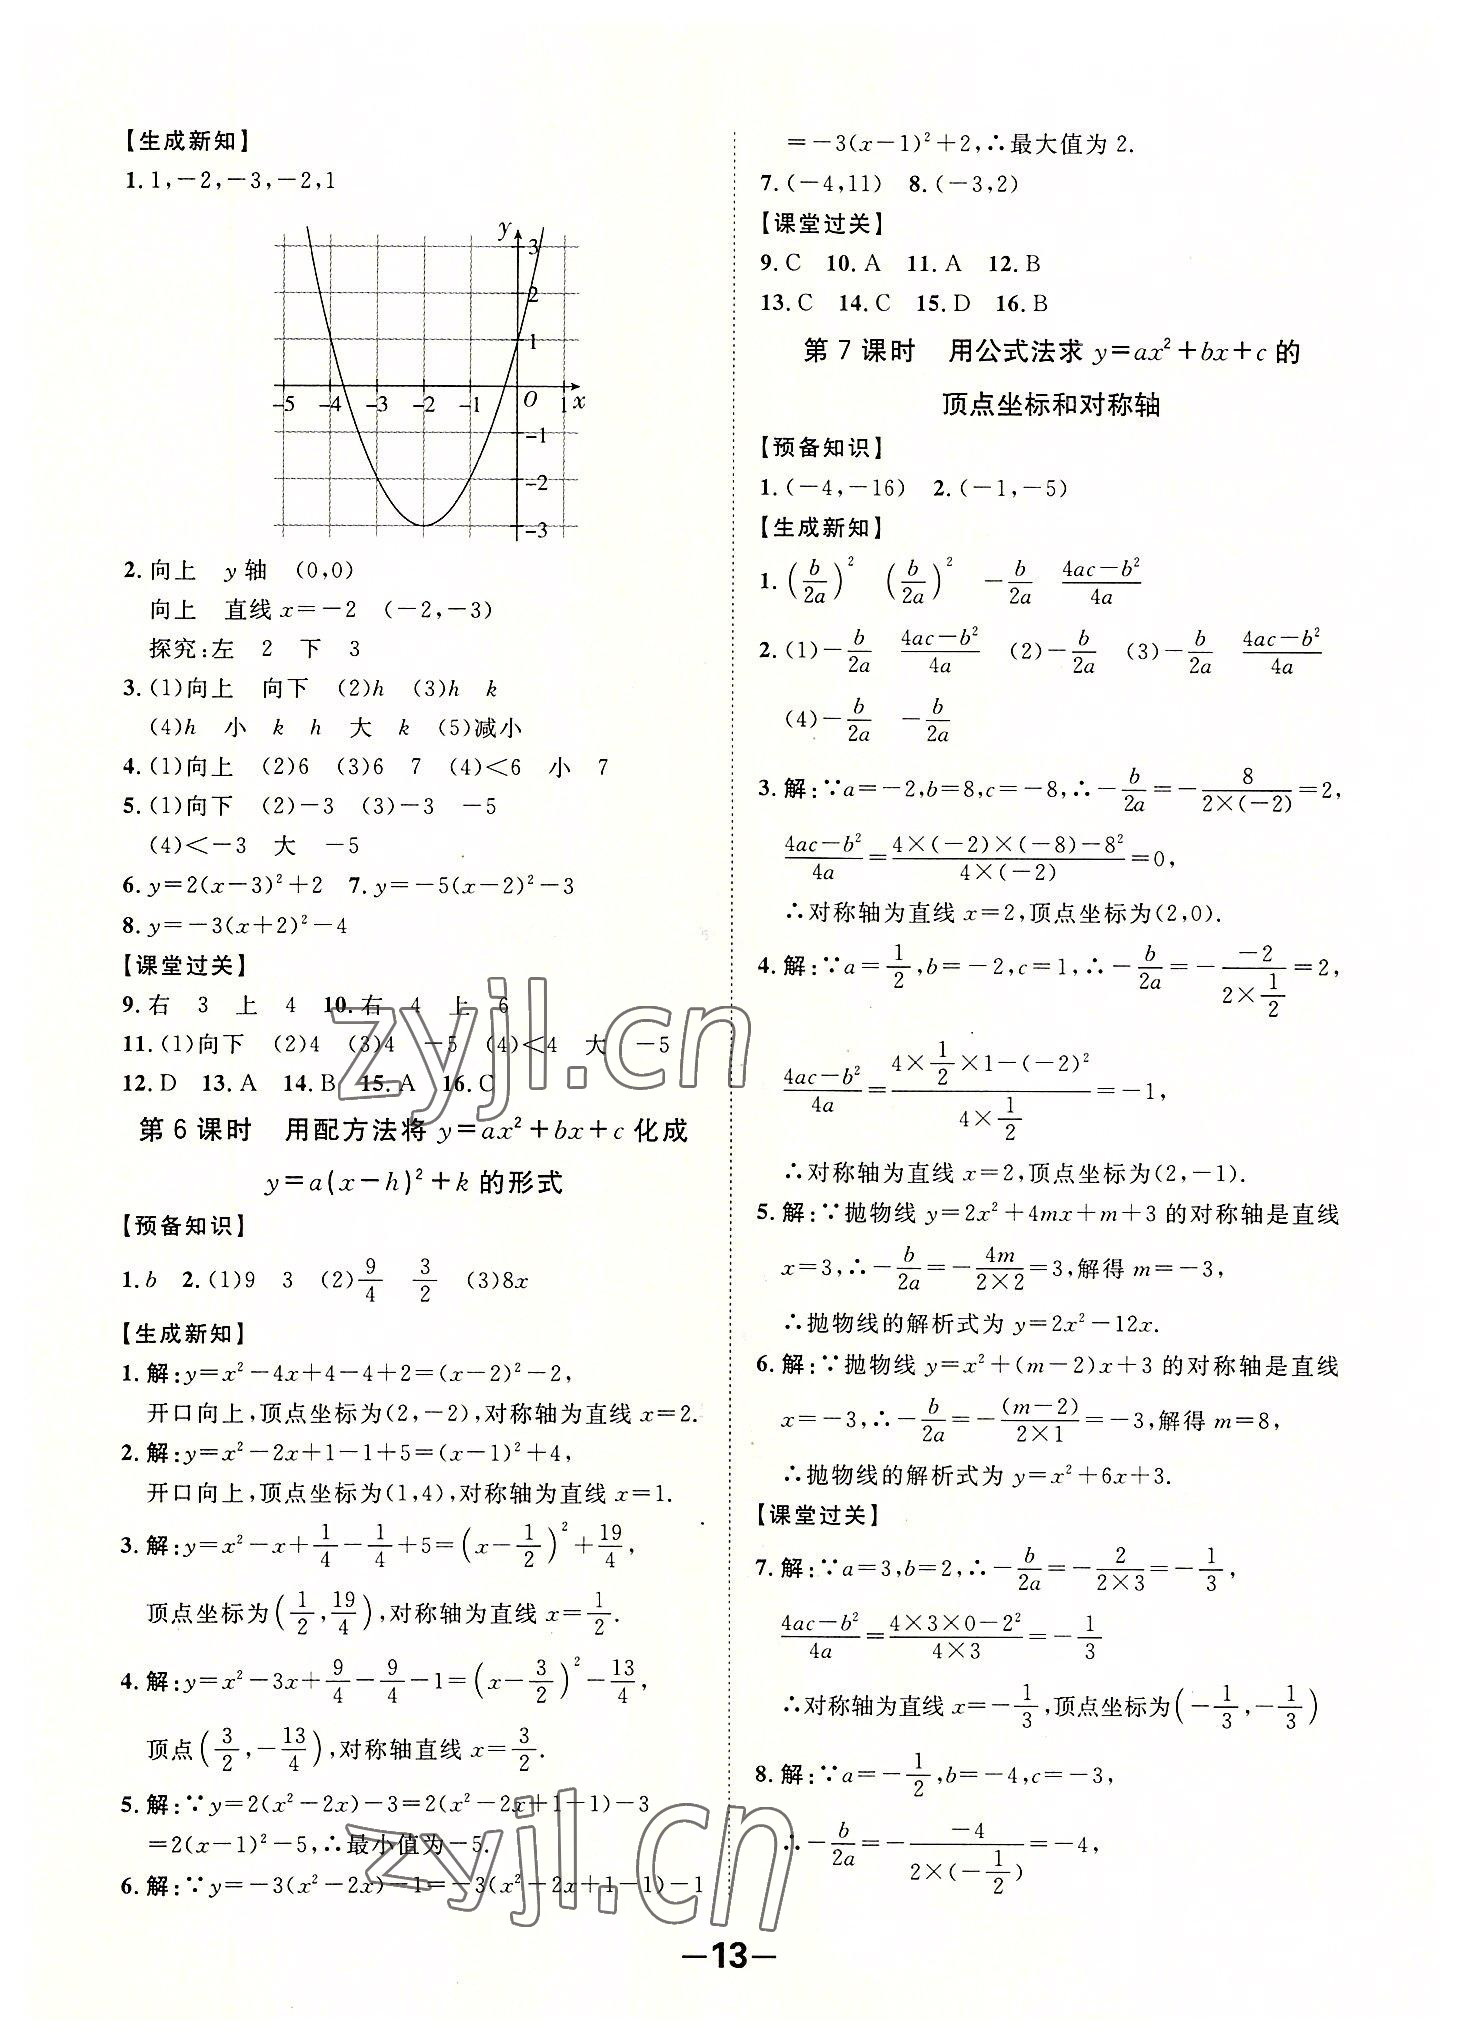 【生成新知】
1. 1,-2,-3,-2,1
y
3
2
1
-5 -4 -3 -2 -1 O 1 x
-1
-2
-3
2. 向上 y轴 (0,0)
向上 直线x=-2 (-2,-3)
探究:左 2 下 3
3. (1)向上 向下 (2)h (3)h k
(4)h 小 k h 大 k (5)减小
4. (1)向上 (2)6 (3)6 7 (4)<6 小 7
5. (1)向下 (2)-3 (3)-3 -5
(4)<-3 大 -5
6. y=2(x-3)²+2 7. y=-5(x-2)²-3
8. y=-3(x+2)²-4
【课堂过关】
9. 右 3 上 4 10. 右 4 上 6
11. (1)向下 (2)4 (3)4 -5 (4)<4 大 -5
12. D 13. A 14. B 15. A 16. C
第6课时 用配方法将y=ax²+bx+c化成
y=a(x-h)²+k的形式
【预备知识】
1. b 2. (1)9 3 (2)9/4 3/2 (3)8x
【生成新知】
1. 解:y=x²-4x+4-4+2=(x-2)²-2,
开口向上,顶点坐标为(2,-2),对称轴为直线x=2.
2. 解:y=x²-2x+1-1+5=(x-1)²+4,
开口向上,顶点坐标为(1,4),对称轴为直线x=1.
3. 解:y=x²-x+1/4-1/4+5=(x-1/2)²+19/4,
顶点坐标为(1/2,19/4),对称轴为直线x=1/2.
4. 解:y=x²-3x+9/4-9/4-1=(x-3/2)²-13/4,
顶点(3/2,-13/4),对称轴直线x=3/2.
5. 解:∵y=2(x²-2x)-3=2(x²-2x+1-1)-3
=2(x-1)²-5,∴最小值为-5.
6. 解:∵y=-3(x²-2x)-1=-3(x²-2x+1-1)-1
=-3(x-1)²+2,∴最大值为2.
7. (-4,11) 8. (-3,2)
【课堂过关】
9. C 10. A 11. A 12. B
13. C 14. C 15. D 16. B
第7课时 用公式法求y=ax²+bx+c的
顶点坐标和对称轴
【预备知识】
1. (-4,-16) 2. (-1,-5)
【生成新知】
1. (b/2a)² (b/2a)² -b/2a (4ac-b²)/4a
2. (1)-b/2a (4ac-b²)/4a (2)-b/2a (3)-b/2a (4ac-b²)/4a
(4)-b/2a -b/2a
3. 解:∵a=-2,b=8,c=-8,∴-b/2a=-8/(2×(-2))=2,
(4ac-b²)/4a=(4×(-2)×(-8)-8²)/(4×(-2))=0,
∴对称轴为直线x=2,顶点坐标为(2,0).
4. 解:∵a=1/2,b=-2,c=1,∴-b/2a=-(-2)/(2×1/2)=2,
(4ac-b²)/4a=(4×1/2×1-(-2)²)/(4×1/2)=-1,
∴对称轴为直线x=2,顶点坐标为(2,-1).
5. 解:∵抛物线y=2x²+4mx+m+3的对称轴是直线
x=3,∴-b/2a=-4m/(2×2)=3,解得m=-3,
∴抛物线的解析式为y=2x²-12x.
6. 解:∵抛物线y=x²+(m-2)x+3的对称轴是直线
x=-3,∴-b/2a=-(m-2)/(2×1)=-3,解得m=8,
∴抛物线的解析式为y=x²+6x+3.
【课堂过关】
7. 解:∵a=3,b=2,∴-b/2a=-2/(2×3)=-1/3,
(4ac-b²)/4a=(4×3×0-2²)/(4×3)=-1/3
∴对称轴为直线x=-1/3,顶点坐标为(-1/3,-1/3)
8. 解:∵a=-1/2,b=-4,c=-3,
∴-b/2a=-(-4)/(2×(-1/2))=-4,
zyjl.cn
zyjl.cn
-13-